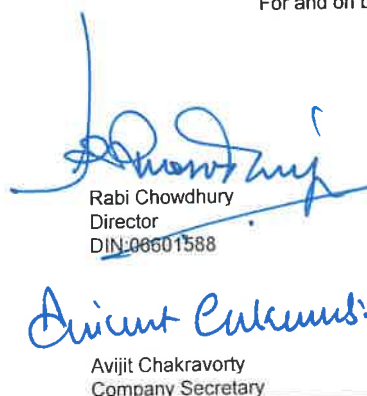 For and on b
Rabi Chowdhury
Director
DIN:06601588
Avijit Chakravorty
Company Secretary